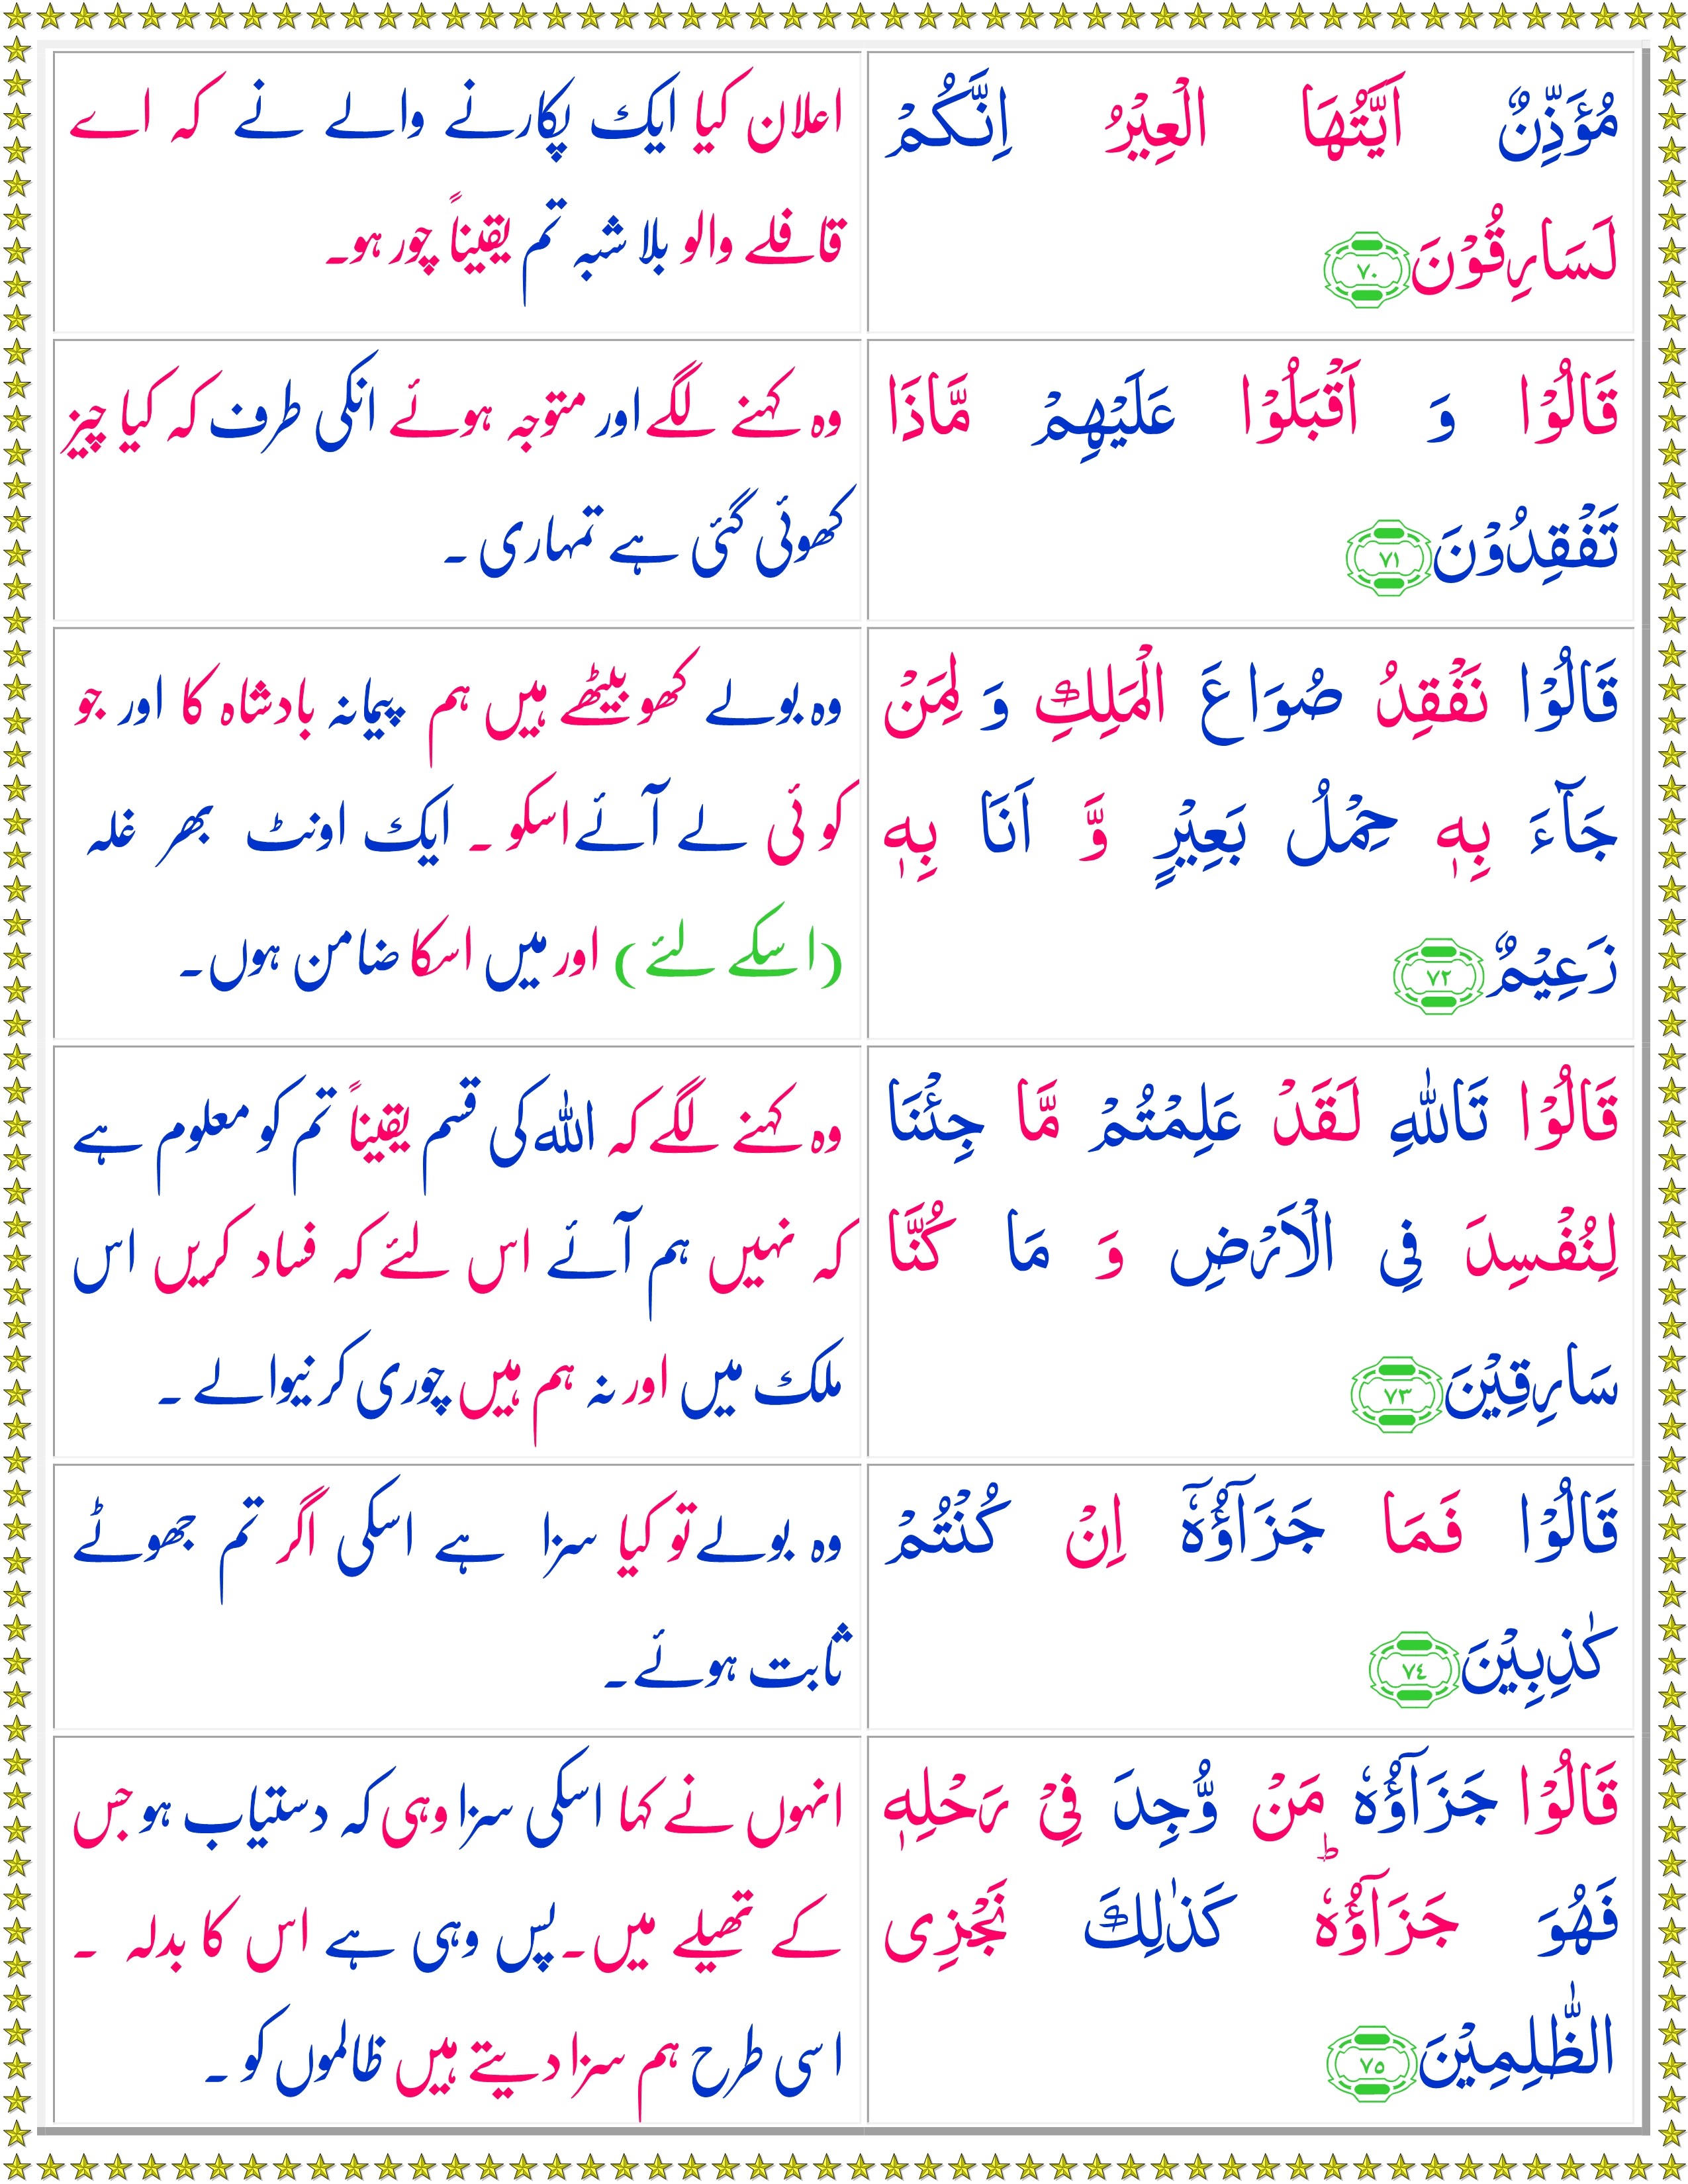 مُؤَذِّنٌ اَيَّتُهَا الۡعِيۡرُ اِنَّكُمۡ
لَسَارِقُوۡنَ‏ ﴿۷۰﴾
اعلان کیا ایک پکارنے والے نے کہ اے
قافلے والو بلا شبہ تم یقیناً چور ہو۔
قَالُوۡا وَ اَقۡبَلُوۡا عَلَيۡهِمۡ مَّاذَا
تَفۡقِدُوۡنَ‏ ﴿۷۱﴾
وہ کہنے لگے اور متوجہ ہوئے انکی طرف کہ کیا چیز
کھوئی گئی ہے تمہاری ۔
قَالُوۡا نَفۡقِدُ صُوَاعَ الۡمَلِكِ وَ لِمَنۡ
جَآءَ بِهٖ حِمۡلُ بَعِيۡرٍ وَّ اَنَا بِهٖ
زَعِيۡمٌ‏ ﴿۷۲﴾
وہ بولے کھو بیٹھے ہیں ہم پیمانہ بادشاہ کا اور جو
کوئی لے آئے اسکو ۔ ایک اونٹ بھر غلہ
(اسکے لئے) اور میں اسکا ضامن ہوں۔
قَالُوۡا تَاللّٰهِ لَقَدۡ عَلِمۡتُمۡ مَّا جِئۡنَا
لِنُفۡسِدَ فِى الۡاَرۡضِ وَ مَا كُنَّا
سَارِقِيۡنَ‏ ﴿۷۳﴾
وہ کہنے لگے کہ اللہ کی قسم یقیناً تم کو معلوم ہے
کہ نہیں ہم آئے اس لئے کہ فساد کریں اس
ملک میں اور نہ ہم ہیں چوری کرنیوالے ۔
قَالُوۡا فَمَا جَزَآؤُهٗۤ اِنۡ كُنۡتُمۡ
كٰذِبِيۡنَ‏ ﴿۷٤﴾
وہ بولے تو کیا سزا ہے اسکی اگر تم جھوٹے
ثابت ہوئے۔
قَالُوۡا جَزَآؤُهٗ مَنۡ وُّجِدَ فِىۡ رَحۡلِهٖ
فَهُوَ جَزَآؤُهٗ‌ؕ كَذٰلِكَ نَجۡزِى
الظّٰلِمِيۡنَ‏ ﴿۷۵﴾
انہوں نے کہا اسکی سزا وہی کہ دستیاب ہو جس
کے تھیلے میں۔ پس وہی ہے اس کا بدلہ ۔
اسی طرح ہم سزا دیتے ہیں ظالموں کو ۔